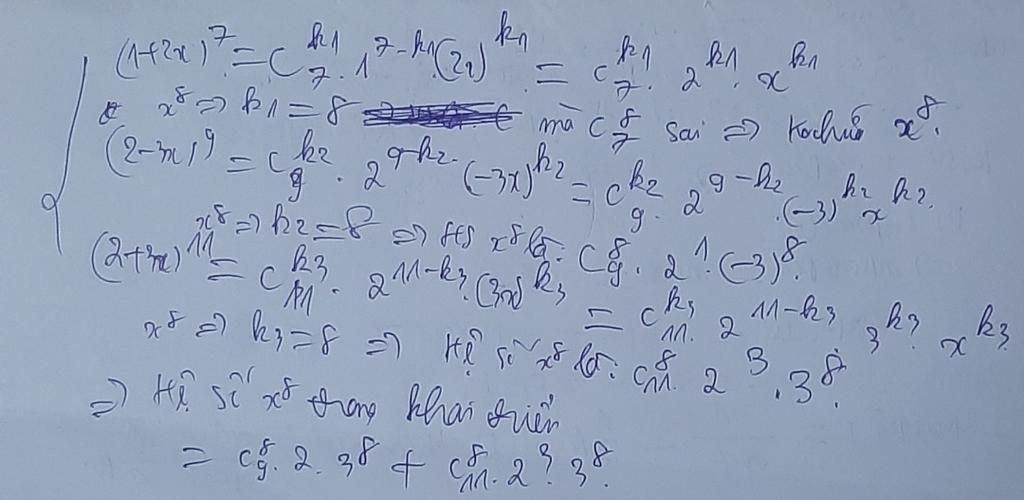 (1+2x)^7 = C_7^{k1} . 1^{7-k1} (2x)^{k1} = C_7^{k1} . 2^{k1} . x^{k1}
x^8 => k1 = 8 mà C_7^8 sai => Ko chứa x^8.
(2-3x)^9 = C_9^{k2} . 2^{9-k2} . (-3x)^{k2} = C_9^{k2} . 2^{9-k2} . (-3)^{k2} x^{k2}.
x^8 => k2 = 8 => HS x^8 là: C_9^8 . 2^1 . (-3)^8.
(2+3x)^{11} = C_{11}^{k3} . 2^{11-k3} . (3x)^{k3} = C_{11}^{k3} . 2^{11-k3} . 3^{k3} . x^{k3}
x^8 => k3 = 8 => Hệ số x^8 là: C_{11}^8 . 2^3 . 3^8.
=> Hệ số x^8 trong khai triển
= C_9^8 . 2 . 3^8 + C_{11}^8 . 2^3 . 3^8.